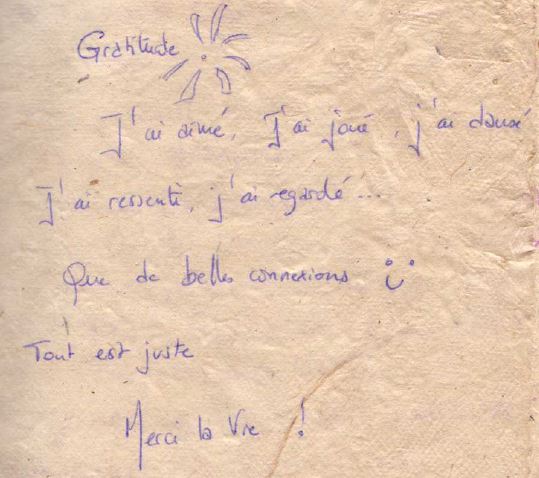 Gratitude
J'ai aimé, J'ai joué, j'ai dansé
J'ai ressenti, j'ai regardé...
Que de belles connexions :)
Tout est juste
Merci la Vie !